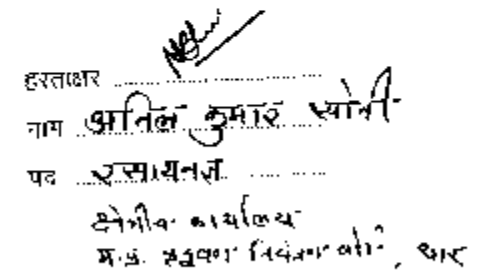 हस्ताक्षर
नाम अनिल कुमार सोनी
पद रसायनज्ञ
क्षेत्रीय कार्यालय
म.प्र. प्रदूषण नियंत्रण बोर्ड, धार